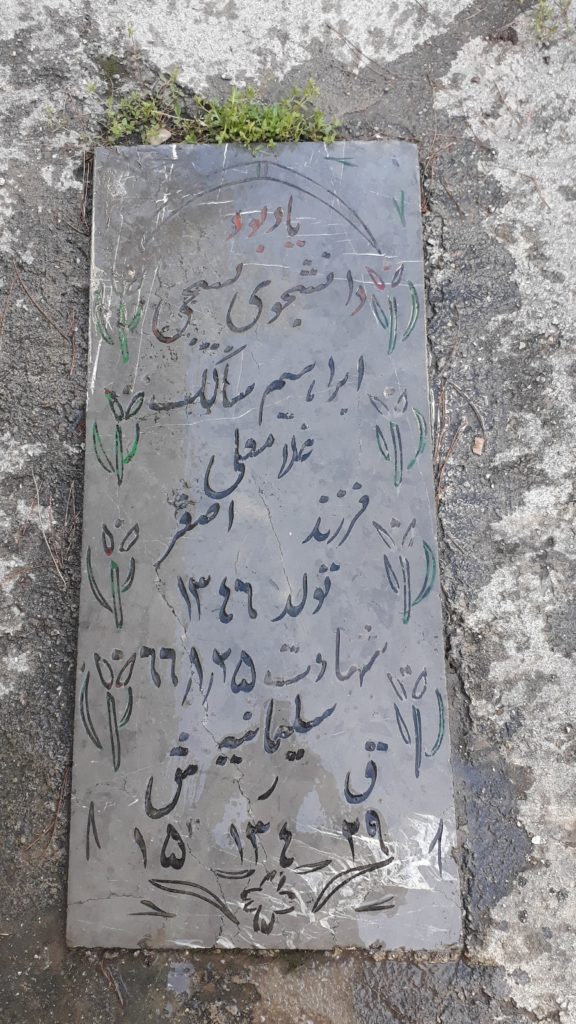 یادبود
دانشجوی بسیجی
ابراهیم سالک
غلامعلی
فرزند اصغر
تولد ۱۳۴۶
شهادت ۶۶٫۱٫۲۵
سلیمانیه
ق ر ش
۲۹ ۱۳۴ ۱۵